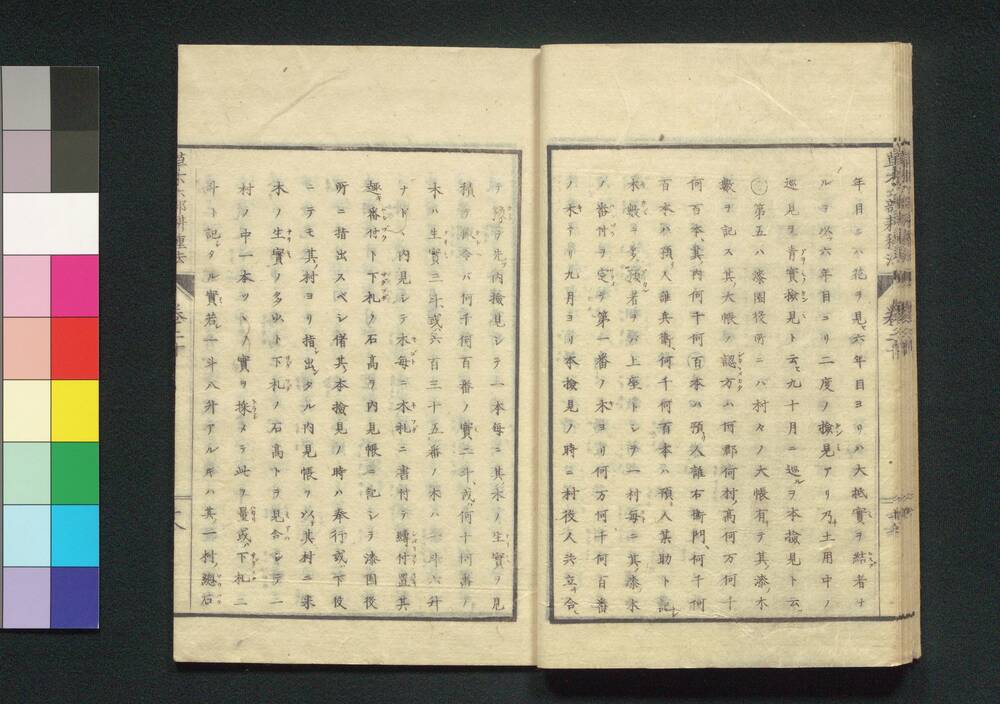 年目ニハ花ヲ見、六年目ヨリハ大抵實ヲ結者ナ
ルヲ以、六年目ヨリ二度ノ撿見アリ乃土用中ノ
巡見ヲ青實撿見ト云、九十月ニ巡ヲ本撿見ト云
第五ハ漆園役所ニハ村々ノ大帳有テ其漆木
數ヲ記ス其大帳ノ認方ハ何郡何村、高何万何千
何百本、其内何千何百本ハ預人誰右衛門、何千何
百本ハ預人誰兵衛、何千何百本ハ預人某助ト記
木數ヲ多預者ヲハ上座トシテ一村每ニ其漆木
ノ番付ヲ定テ第一番ノ木ヨリ何万何千何百番
ノ木ナリ九月ヨリ本撿見ノ時ニ村役人共立合
テ先内撿見シテ一本每ニ其木ノ生實ヲ見
積テ假令バ何千何百番ノ實二斗、或何十何番ノ
木ハ生實三斗、或六百三十五番ノ木ハ一斗六升
ナドヽ内見シテ木每ニ木札ニ書付テ縛付置其
趣番付ト下札ノ石高ヲ内見帳ニ記シテ漆園役
所ニ指出スベシ偖其本撿見ノ時ハ奉行或下役
ニテモ其村ヨリ指出タル内見帳ヲ以其村ニ来
木ノ生實ノ多少ト下札ノ石高トヲ見合シテ一
村ノ中一本ツヽノ實ヲ採メテ此ヲ量或下札ニ
斗ト記タル實若一斗八升アルキハ其一村總石
草木六部耕種法